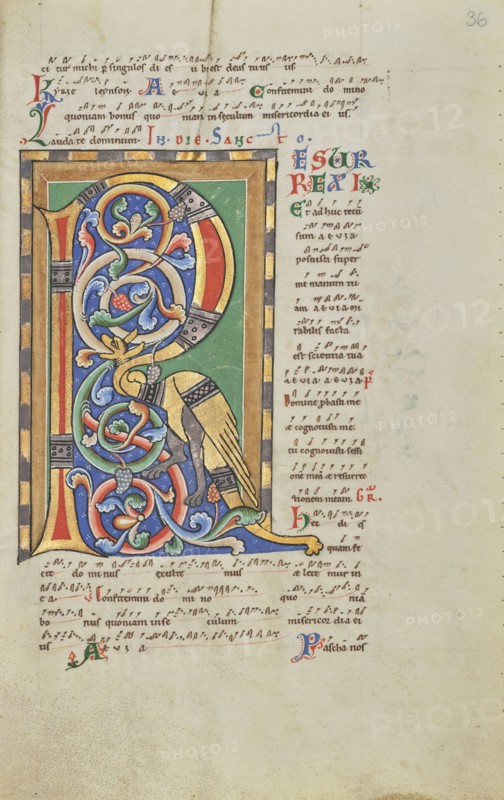 36
ci tur michi p singulos di es u bi est deus tuus us
Kyrie leyson A e u ia Confitemini do mino
quoniam bonus quo niam in seculum misericordia ei us.
Laudate dominum. IN DIE SANCTO.
R ESUR
REXI
Et ad huc tecū
sum a e u ia
posuisti super
me manum tu
am a e u ia mi
rabilis facta
est scientia tua
a e u ia a e u ia. P̄
Domine pbasti me
& cognouisti me
tu cognouisti sessi
onem meā & resurrec
tionem meam. GR.
Hec di es
quam fe
cit do mi nus exulte mus & lete mur in
e a V Confitemini do mi no quo niā
bo nus quoniam in se culum misericor dia ei
us A e u i a Pascha nos
PHOTO12